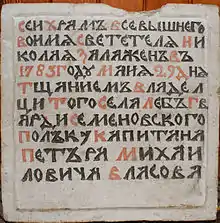 СЕИ ХРАМЪ ВСЕВЫШНЕГО
ВО ИМЯ СВЕТЕТЕЛЯ НИ
КОЛАЯ ЗАЛАЖЕНЪ В
1783 ГОДУ МАИЯ 29 ДНЯ
ТЩАНИЕМЪ ВЛАДЕЛ
ЦИ ТОГО СЕЛА ЛЕБЪ ГВ
АРДИ СЕМЕНОВСКОГО
ПОЛЪКУ КАПИТАНА
ПЕТЪРА МИХАИ
ЛОВИЧА ВЛАСОВА